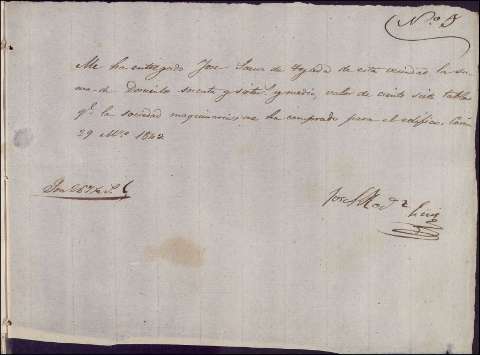 Nº 5
Me ha entregado Jose Saenz de Tejada de esta vecindad la su-
ma de Doscientos sesenta y siete y medio, valor de ciento siete tablas
qe. la sociedad maquinaria me ha comprado para el edificio.
29 Mzo. 1842
Son 267½